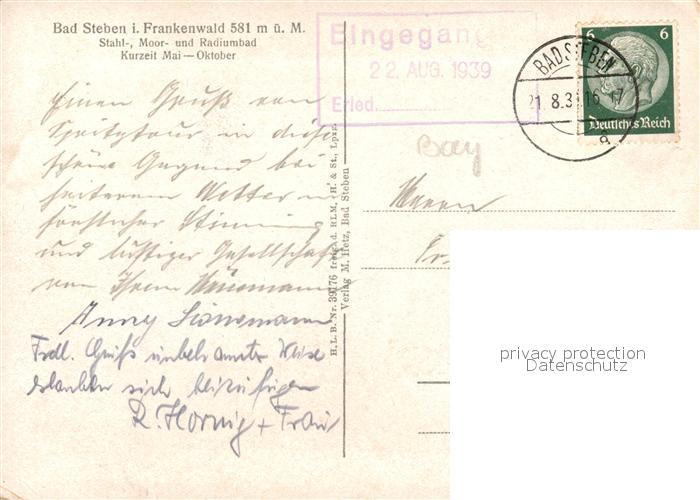 Bad Steben i. Frankenwald 581 m ü. M.
Stahl-, Moor- und Radiumbad
Kurzeit Mai — Oktober
Eingegang
22. AUG. 1939
Erled.
BAD STEBEN
21.8.39.16-17
a
6 6
Deutsches Reich
Bay
Einen Gruß von
Spritztour in diese
schöne Gegend bei
heiterem Wetter
Stimmung
und lustiger Gesellschaft
von Ihrem
Anny
Frdl. Grüße unbekannter Weise
erlauben sich beizufügen
R. Hornig + Frau
Herrn
H. L. B. Nr. 39176 freig. d. RLM. (H. & St., Lpz.)
Verlag M. Hetz, Bad Steben
privacy protection
Datenschutz